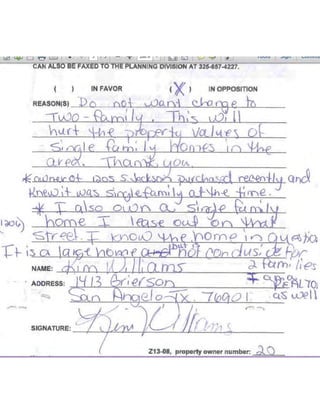 CAN ALSO BE FAXED TO THE PLANNING DIVISION AT 325-657-4227.
( ) IN FAVOR (X) IN OPPOSITION
REASON(S) Do not want change to
Two-family. This will
hurt the property values of
Single family homes in the
area. Thank you.
*owner of 1205 S. Jackson purchased recently and
Knew it was single family at the time.
* I also own a single family
(1206) home I lease out on that
Street. I know the home in question
It is a large home but not conducive for
2 families
NAME: Kim Williams
I am a
ADDRESS: 1413 Grierson REALTOR
San Angelo Tx. 76901 as well
SIGNATURE: Kim Williams
Z13-08, property owner number: 20